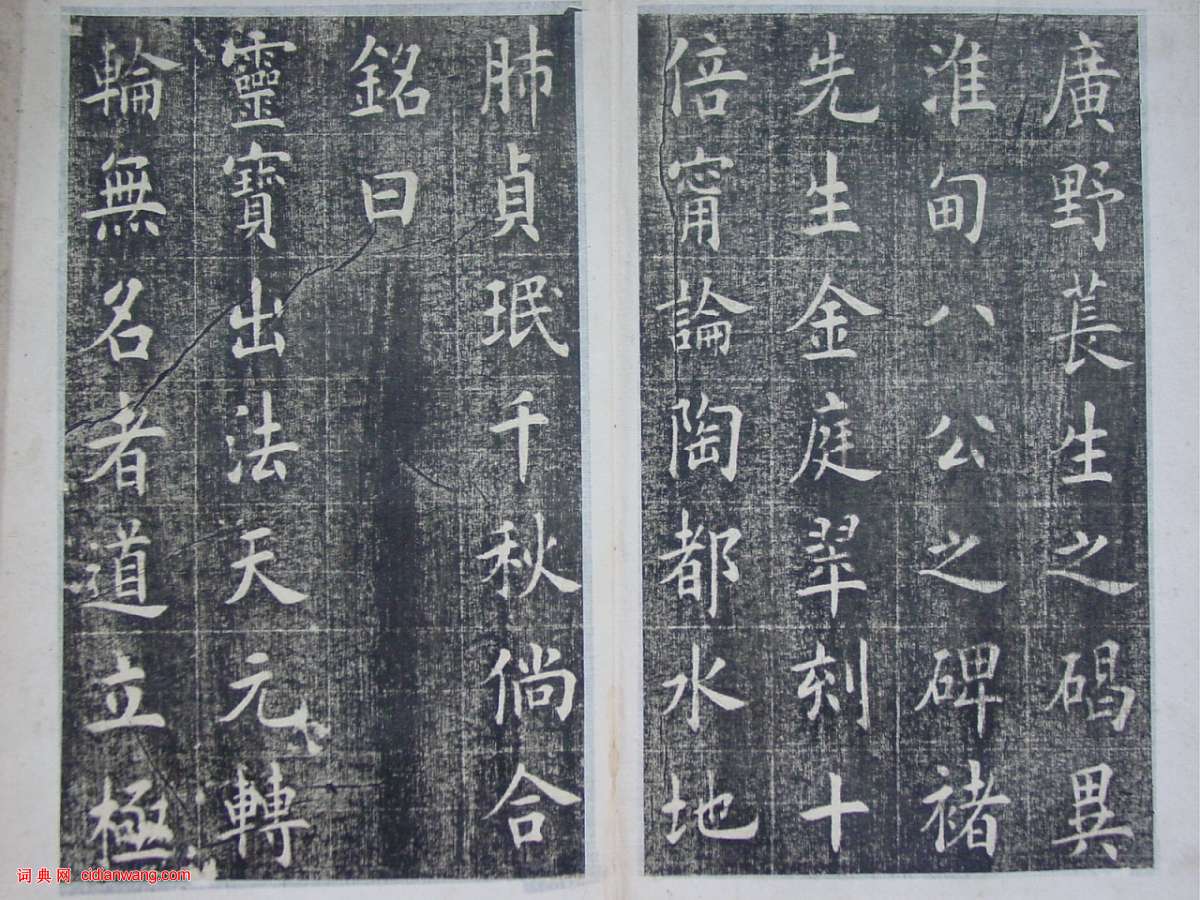 廣野萇生之碣異
淮甸八公之碑褚
先生金庭翠刻十
倍甯論陶都水地
肺貞珉千秋倘合
銘曰
靈寶出法天元轉
輪無名者道立極
词典网 cidianwang.com